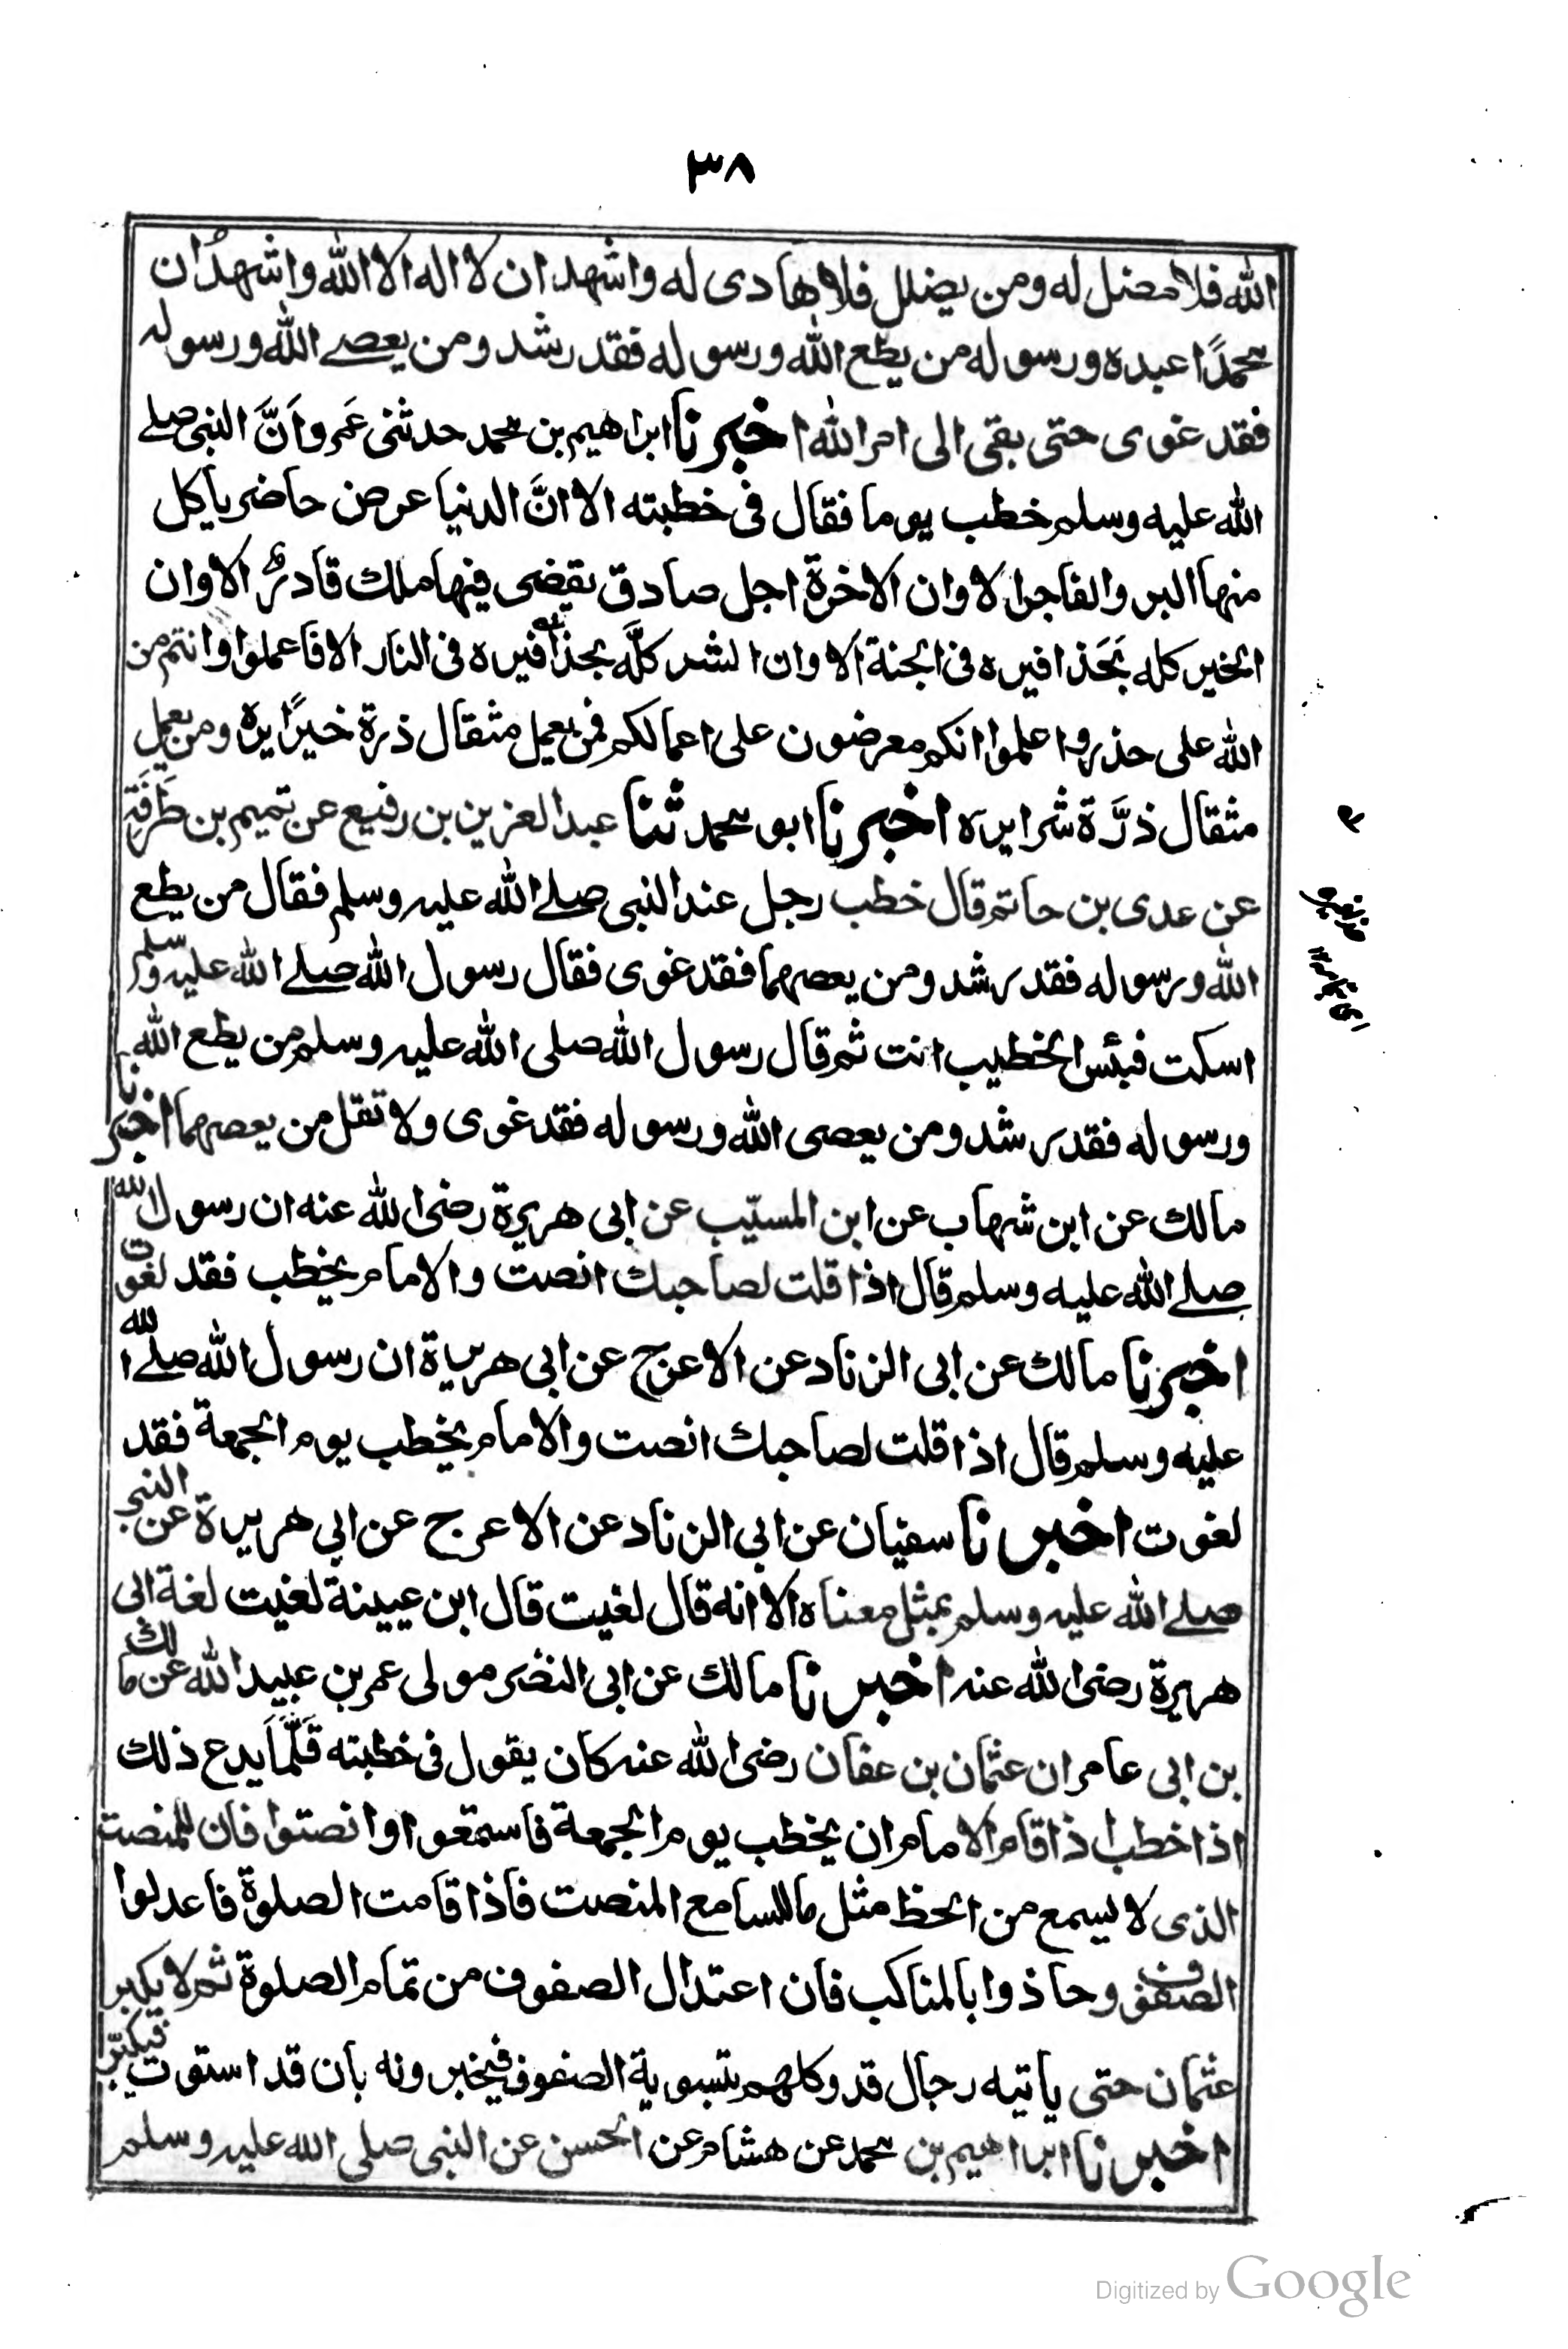 ٣٨
الله فلا مضل له ومن يضلل فلا هادى له واشهد ان لا اله الا الله واشهدُ ان
محمدًا عبده ورسوله من يطع الله ورسوله فقد رشد ومن يعصے الله ورسوله
فقد غوى حتى يفئ الى امر الله اخبرنا ابراهيم بن محمد حدثنى عَمرو اَنَّ النبى صلے
الله عليه وسلم خطب يوما فقال فى خطبته الا انَّ الدنيا عرض حاضر ياكل
منها البر والفاجر الا وان الاخرة اجل صادق يقضى فيها ملك قادرٌ الا وان
الخير كله بَحَذافيره فى الجنة الا وان الشر كلَّه بحذافيره فى النار الا فاعملوا وانتم من
الله على حذر واعلموا انكم معرضون على اعمالكم فمن يعمل مثقال ذرة خيرًا يره ومن يعمل
مثقال ذرَّة شرا يره اخبرنا ابو محمد ثنا عبد العزيز بن رفيع عن تميم بن طَرَفَة
عن عدى بن حاتم قال خطب رجل عند النبى صلے الله عليه وسلم فقال من يطع
الله ورسوله فقد رشد ومن يعصهما فقد غوى فقال رسول الله صلے الله عليه وسلم
اسكت فبئس الخطيب انت ثم قال رسول الله صلى الله عليه وسلم من يطع الله
ورسوله فقد رشد ومن يعصى الله ورسوله فقد غوى ولا تقل من يعصهما اخبرنا
مالك عن ابن شهاب عن ابن المسيّب عن ابى هريرة رضى الله عنه ان رسول الله
صلے الله عليه وسلم قال اذا قلت لصاحبك انصت والامام يخطب فقد لغوت
اخبرنا مالك عن ابى الزناد عن الاعرج عن ابى هريرة ان رسول الله صلے الله
عليه وسلم قال اذا قلت لصاحبك انصت والامام يخطب يوم الجمعة فقد
لغوت اخبرنا سفيان عن ابى الزناد عن الاعرج عن ابى هريرة عن النبى
صلے الله عليه وسلم بمثل معناه الا انه قال لغيت قال ابن عيينة لغيت لغة ابى
هريرة رضى الله عنه اخبرنا مالك عن ابى النضر مولى عمر بن عبيد الله عن مالك
بن ابى عامر ان عثمان بن عفان رضى الله عنه كان يقول فى خطبته قَلَّمَا يدع ذلك
اذا خطب اذا قام الامام ان يخطب يوم الجمعة فاستمعوا وانصتوا فان للمنصت
الذى لا يسمع من الحظ مثل ما للسامع المنصت فاذا قامت الصلوة فاعدلوا
الصفوف وحاذوا بالمناكب فان اعتدال الصفوف من تمام الصلوة ثم لا يكبر
عثمان حتى ياتيه رجال قد وكلهم بتسوية الصفوف فيخبرونه بان قد استوت فيكبّر
اخبرنا ابراهيم بن محمد عن هشام عن الحسن عن النبى صلى الله عليه وسلم
Digitized by Google